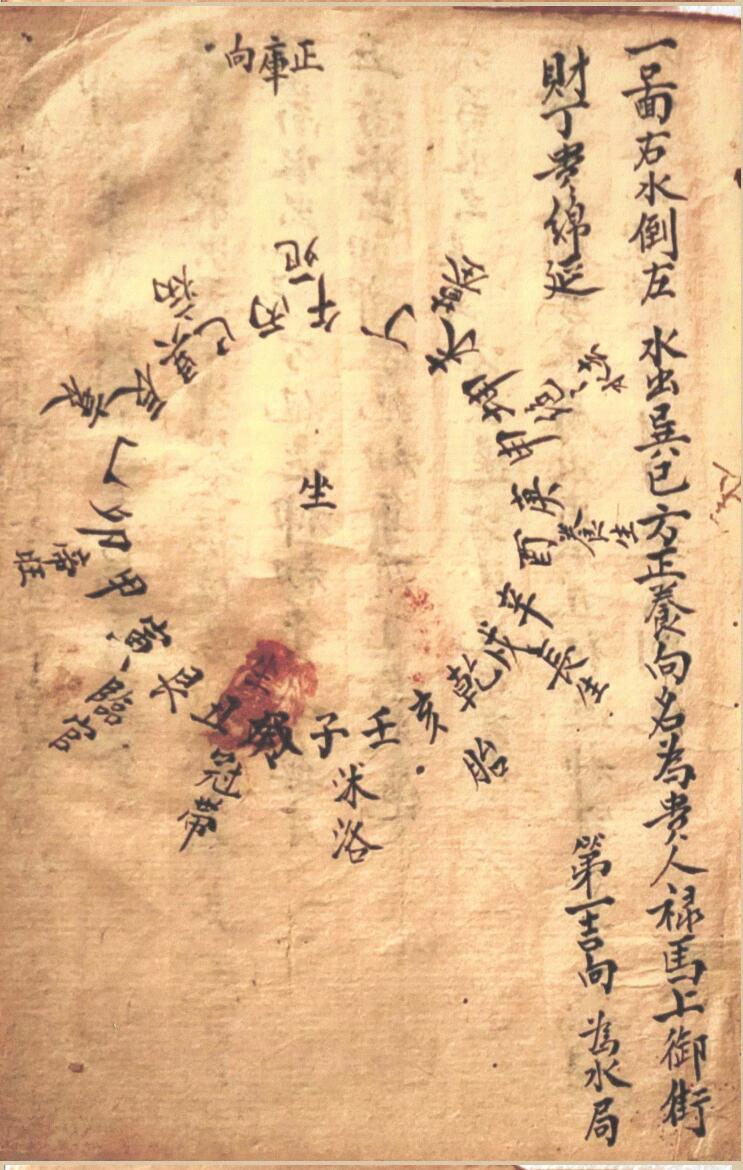 一啚面右水倒左 水出巽巳方正養向名為貴人禄馬上御街
財丁貴綿延 第一吉向 為水局
正庫向
坐
午丁未坤申庚酉辛戌乾亥壬子癸丑艮寅甲卯乙辰巽巳丙
死
養生
長生
胎
沐浴
冠帶
臨官
帝旺
衰